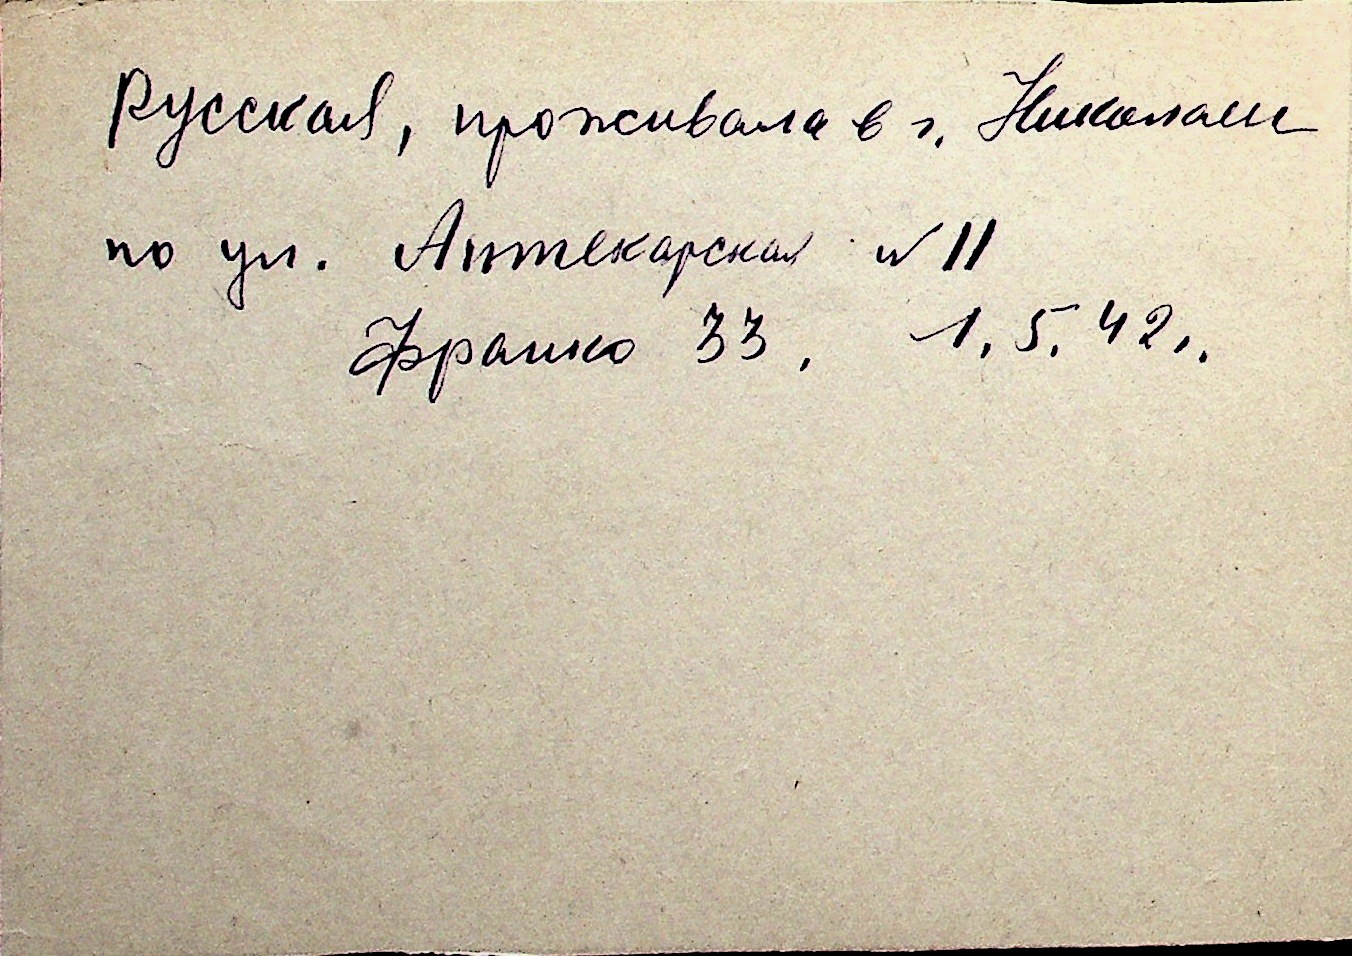 Русская, проживала в г. Николаеи
по ул. Аптекарская № 11
Франко 33, 1.5.42г.